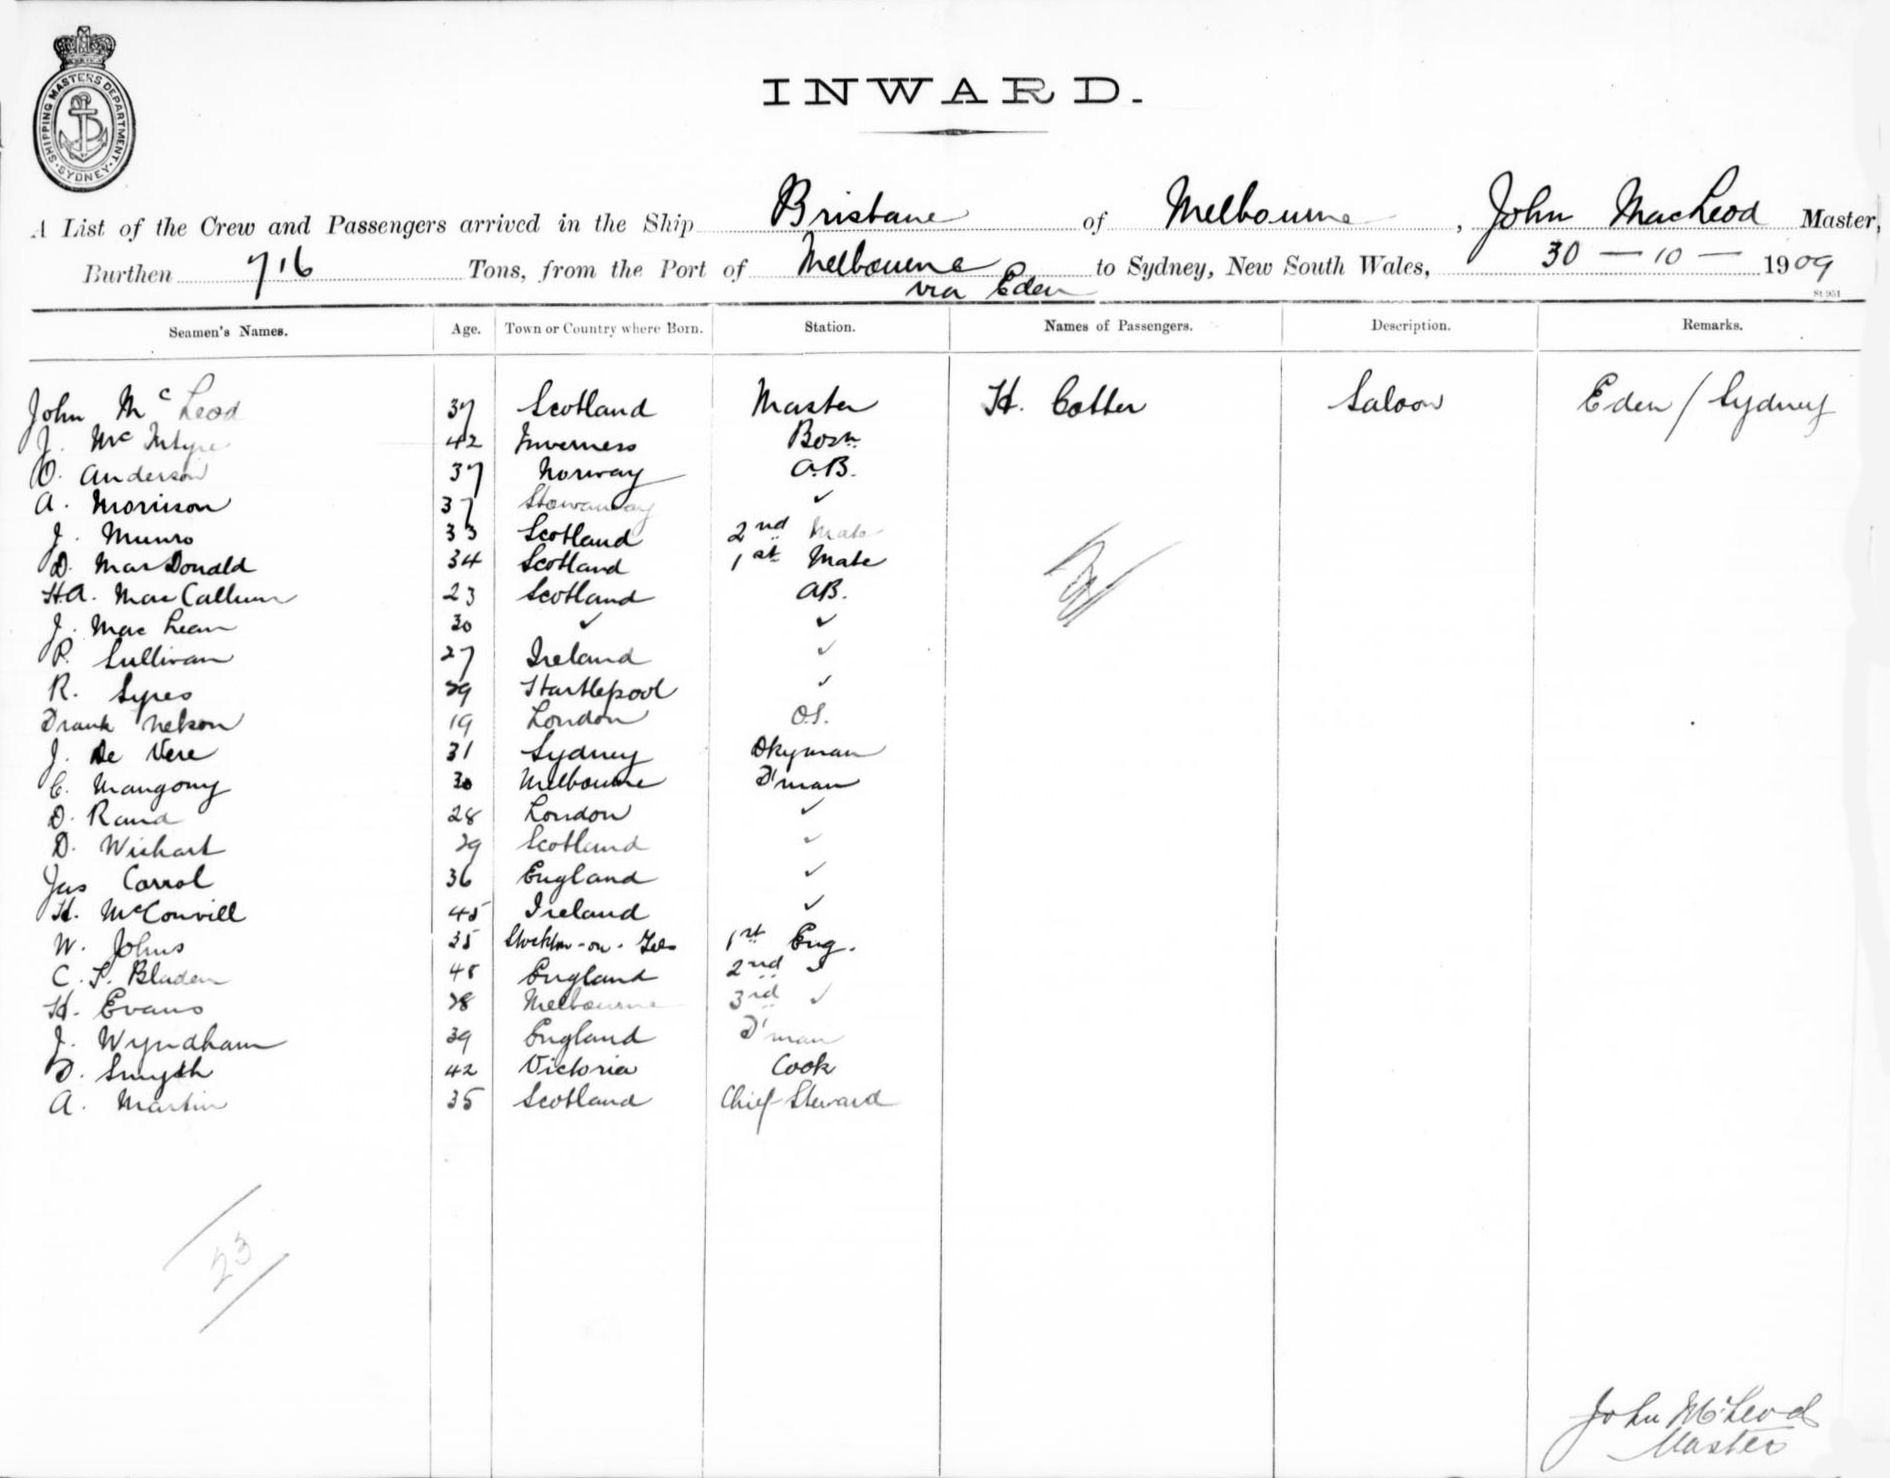 SHIPPING MASTERS DEPARTMENT · SYDNEY ·
INWARD.
A List of the Crew and Passengers arrived in the Ship Brisbane of Melbourne, John MacLeod Master,
Burthen 716 Tons, from the Port of Melbourne to Sydney, New South Wales, 30 — 10 — 1909
via Eden
St 951
Seamen's Names. Age. Town or Country where Born. Station. Names of Passengers. Description. Remarks.
John McLeod 37 Scotland Master H. Cotter Saloon Eden / Sydney
J. McIntyre 42 Inverness Bosn
O. Anderson 37 Norway A.B.
A. Morrison 37 ✓
J. Munro 33 Scotland 2nd Mate
D. MacDonald 34 Scotland 1st Mate
H.A. MacCallum 23 Scotland AB.
J. MacLean 30 ✓ ✓
P. Sullivan 27 Ireland ✓
R. Syres 29 Hartlepool ✓
Frank Nelson 19 London O.S.
J. De Vere 31 Sydney Dkyman
C. Mangony 30 Melbourne F'man
D. Rand 28 London ✓
D. Wishart 29 Scotland ✓
Jas Carrol 36 England ✓
H. McConvill 45 Ireland ✓
W. Johns 35 Stockton-on-Tees 1st Eng.
C. S. Bladen 45 England 2nd ✓
H. Evans 28 Melbourne 3rd ✓
J. Wyndham 39 England F'man
F. Smyth 42 Victoria Cook
A. Martin 35 Scotland Chief Steward
23
John McLeod
Master